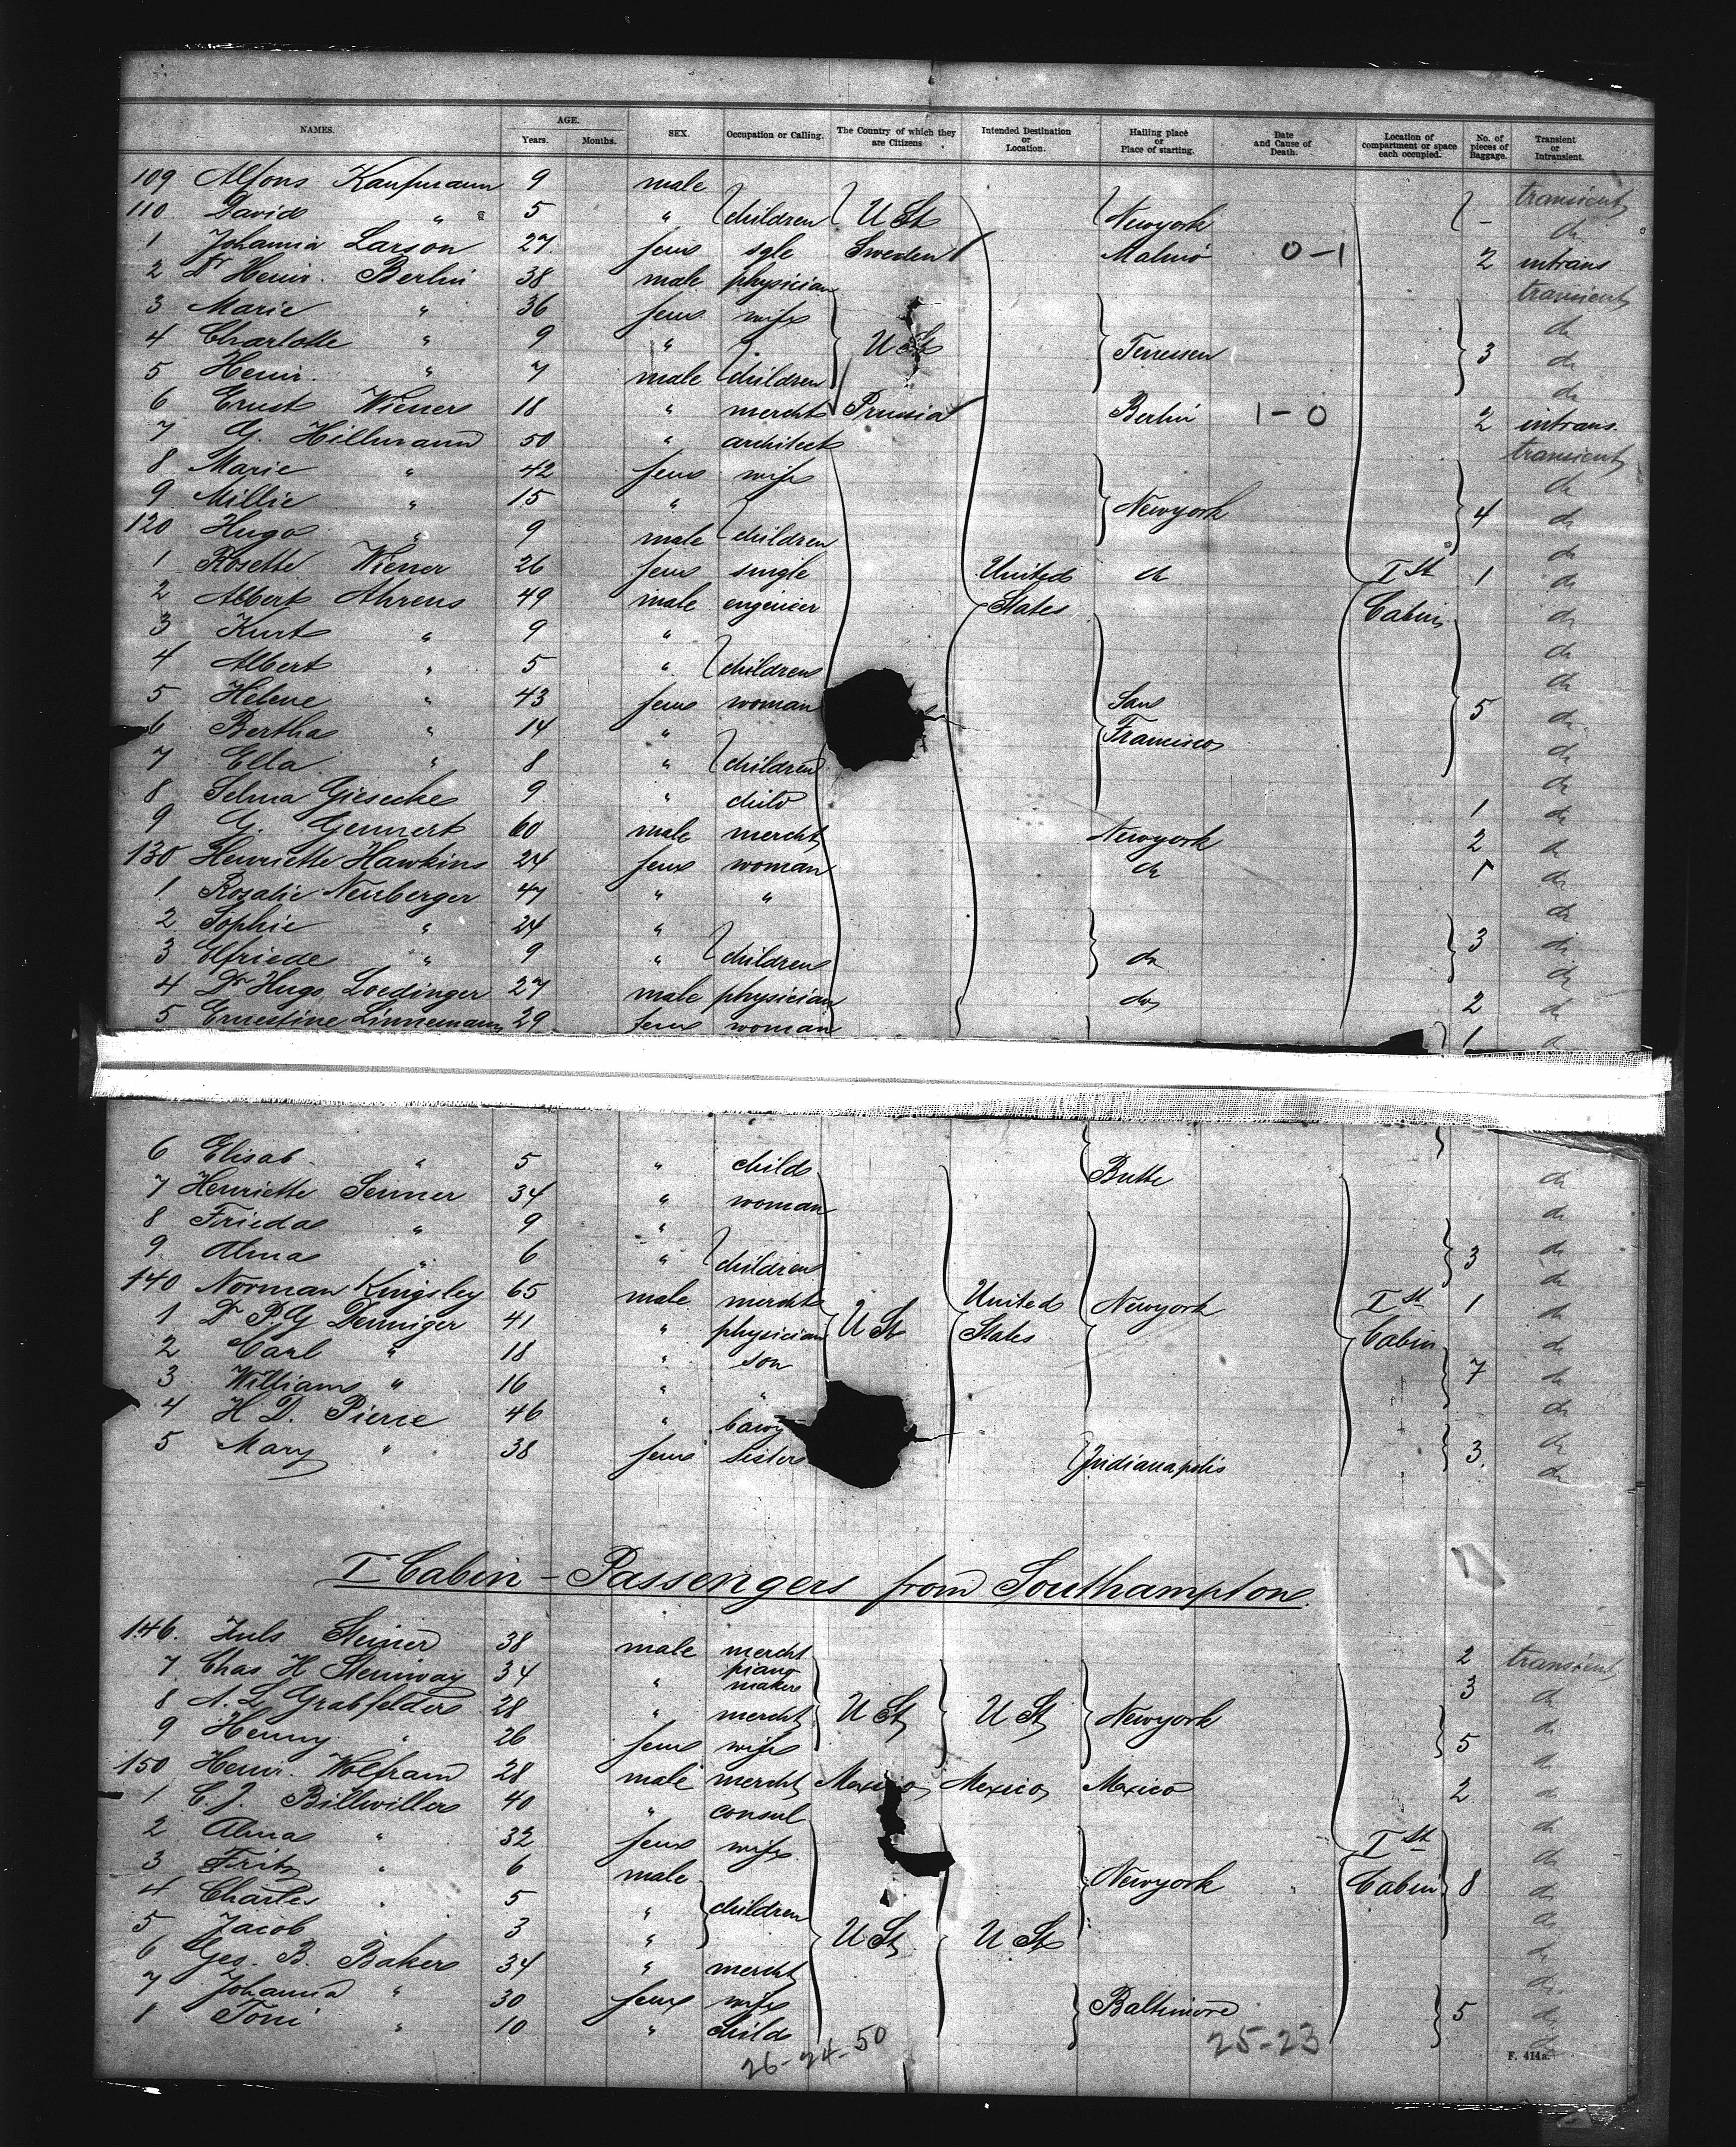 NAMES. AGE. Years. Months. SEX. Occupation or Calling. The Country of which they are Citizens Intended Destination or Location. Hailing place or Place of starting. Date and Cause of Death. Location of compartment or space each occupied. No. of pieces of Baggage. Transient or Intransient.
109 Alfons Kaufmann 9 male transient
110 David " 5 " children U St Newyork - do
1 Johanna Larson 27 fem sgle Sweden Malmö 0-1 2 intrans
2 Dr Heinr. Berlin 38 male physician transient
3 Marie " 36 fem wife do
4 Charlotte " 9 " U St Tennessen 3 do
5 Heinr. " 7 male children do
6 Ernst Wiener 18 " mercht Prussia Berlin 1-0 2 intrans.
7 G. Hillmann 50 " architect transient
8 Marie " 42 fem wife do
9 Millie " 15 " Newyork 4 do
120 Hugo " 9 male children do
1 Rosette Wiener 26 fem single United do Ist 1 do
2 Albert Ahrens 49 male engenier States Cabin do
3 Kurt " 9 " do
4 Albert " 5 " children do
5 Helene " 43 fem woman San 5 do
6 Bertha " 14 " Francisco do
7 Ella " 8 " children do
8 Selma Giesecke 9 " child 1 do
9 G. Gennert 60 male mercht Newyork 2 do
130 Henriette Hawkins 24 fem woman do 1 do
1 Rosalie Neuberger 47 " " do
2 Sophie " 24 " 3 do
3 Elfriede " 9 " children do do
4 Dr Hugo Loedinger 27 male physician do 2 do
5 Ernestine Linnemann 29 fem woman 1 do
6 Elisab. " 5 " child Butte do
7 Henriette Senner 34 " woman do
8 Frieda " 9 " do
9 Alma " 6 " children 3 do
140 Norman Kingsley 65 male mercht United Newyork Ist 1 do
1 Dr P. G. Denniger 41 " physician U St States Cabin do
2 Carl " 18 " son do
3 William " 16 " " 7 do
4 H D. Pierce 46 " do
5 Mary " 38 fem sister Indianapolis 3. do
I Cabin - Passengers from Southampton.
146. Juls Steiner 38 male mercht 2 transient
7 Chas H Steinway 34 " piano maker 3 do
8 A. L Grabfelder 28 " mercht U St U St Newyork do
9 Henny " 26 fem wife 5 do
150 Heinr. Wolfram 28 male mercht Mexico Mexico Mexico 2 do
1 C. J. Billwiller 40 " consul do
2 Alma " 32 fem wife Ist do
3 Fritz " 6 male Newyork Cabin 8 do
4 Charles " 5 " children do
5 Jacob " 3 " U St U St do
6 Geo. B. Baker 34 " mercht do
7 Johanna " 30 fem wife Baltimore 5 do
8 Toni " 10 " child do
26-24-50 25-23
F. 414a.